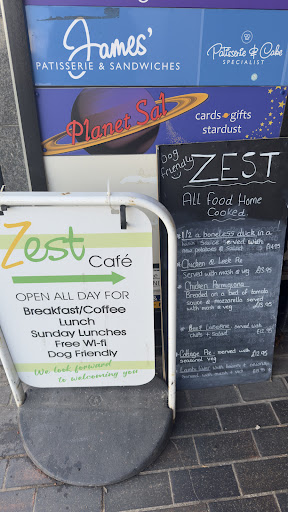 James'
PATISSERIE & SANDWICHES
Patisserie & Cake
SPECIALIST
Planet Sal
cards • gifts
stardust
Zest
Café
OPEN ALL DAY FOR
Breakfast/Coffee
Lunch
Sunday Lunches
Free Wi-fi
Dog Friendly
We look forward
to welcoming you
Dog
Friendly
ZEST
All Food Home
Cooked
1/2 a boneless duck in a
sauce served with
new potatoes & salad
Chicken & Leek Pie
Served with mash & veg
Chicken Parmigiana
Breaded on a bed of tomato
sauce & mozzarella served
with mash & veg
Beef served with
chips + salad £12.95
Cottage Pie - served with
seasonal veg £12.95
served with mash & veg